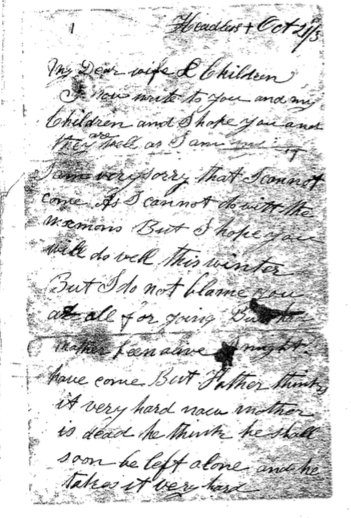 Oct 21/
My Dear wife & Children
I now write to you and my
Children and I hope you and
they are well as I am
I am very sorry that I cannot
come As I cannot do with the
mormons But I hope you
will do well this winter
But I do not blame you
at all for going But
mother been alive I might
have come But Father thinks
it very hard now mother
is dead he thinks he shall
soon be left alone and he
takes it very hard